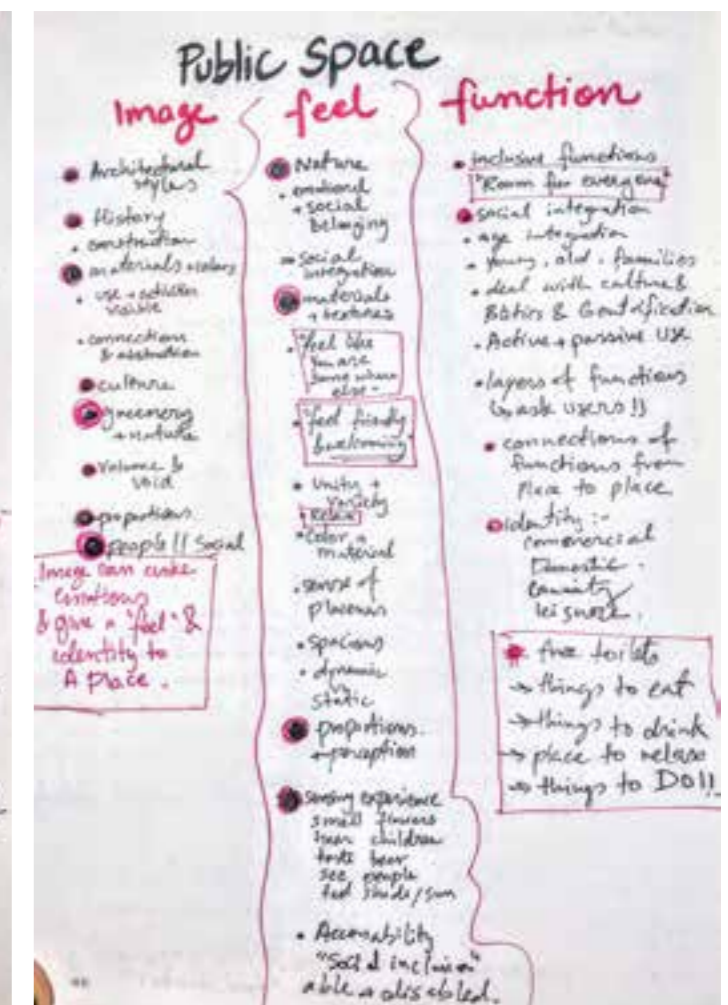 Public Space
Image
Architectural
styles
History
construction
materials + colors
use + activities
visible
connections
& abstraction
culture
greenery
+ nature
Volume &
void
proportions
people !! Social
Image can evoke
emotions
& give a "feel" &
identity to
A place.
feel
Nature
emotional
+ social
belonging
social
integration
materials
+ textures
"feel like
you are
some where
else"
"feel friendly
& welcoming"
Unity +
variety
Relax
Color +
material
sense of
placeness
spacious
dynamic
vs
static
proportions
+ perception
Sensing experience
smell flowers
hear children
taste beer
see people
feel shade/sun
Accessability
"Social inclusion"
able + disabled.
function
inclusive functions
"Room for everyone"
social integration
age integration
young, old, families
deal with culture &
& Gentrification
Active + passive use
layers of functions
↳ ask users !!
connections of
functions from
place to place
identity :-
commercial
Domestic
community
leisure.
free toilets
→ things to eat
→ things to drink
→ place to relax
→ things to DO !!